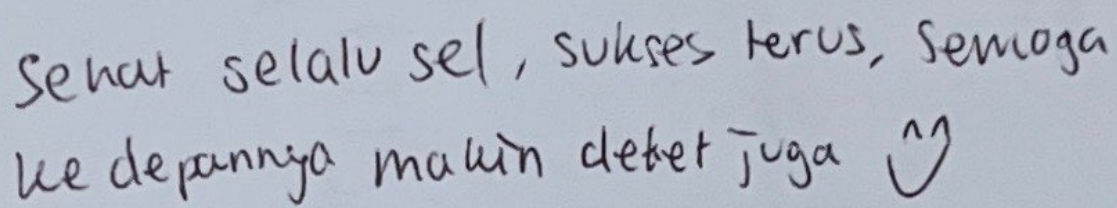 Sehat selalu sel, sukses terus, semoga
kedepannya makin deket juga